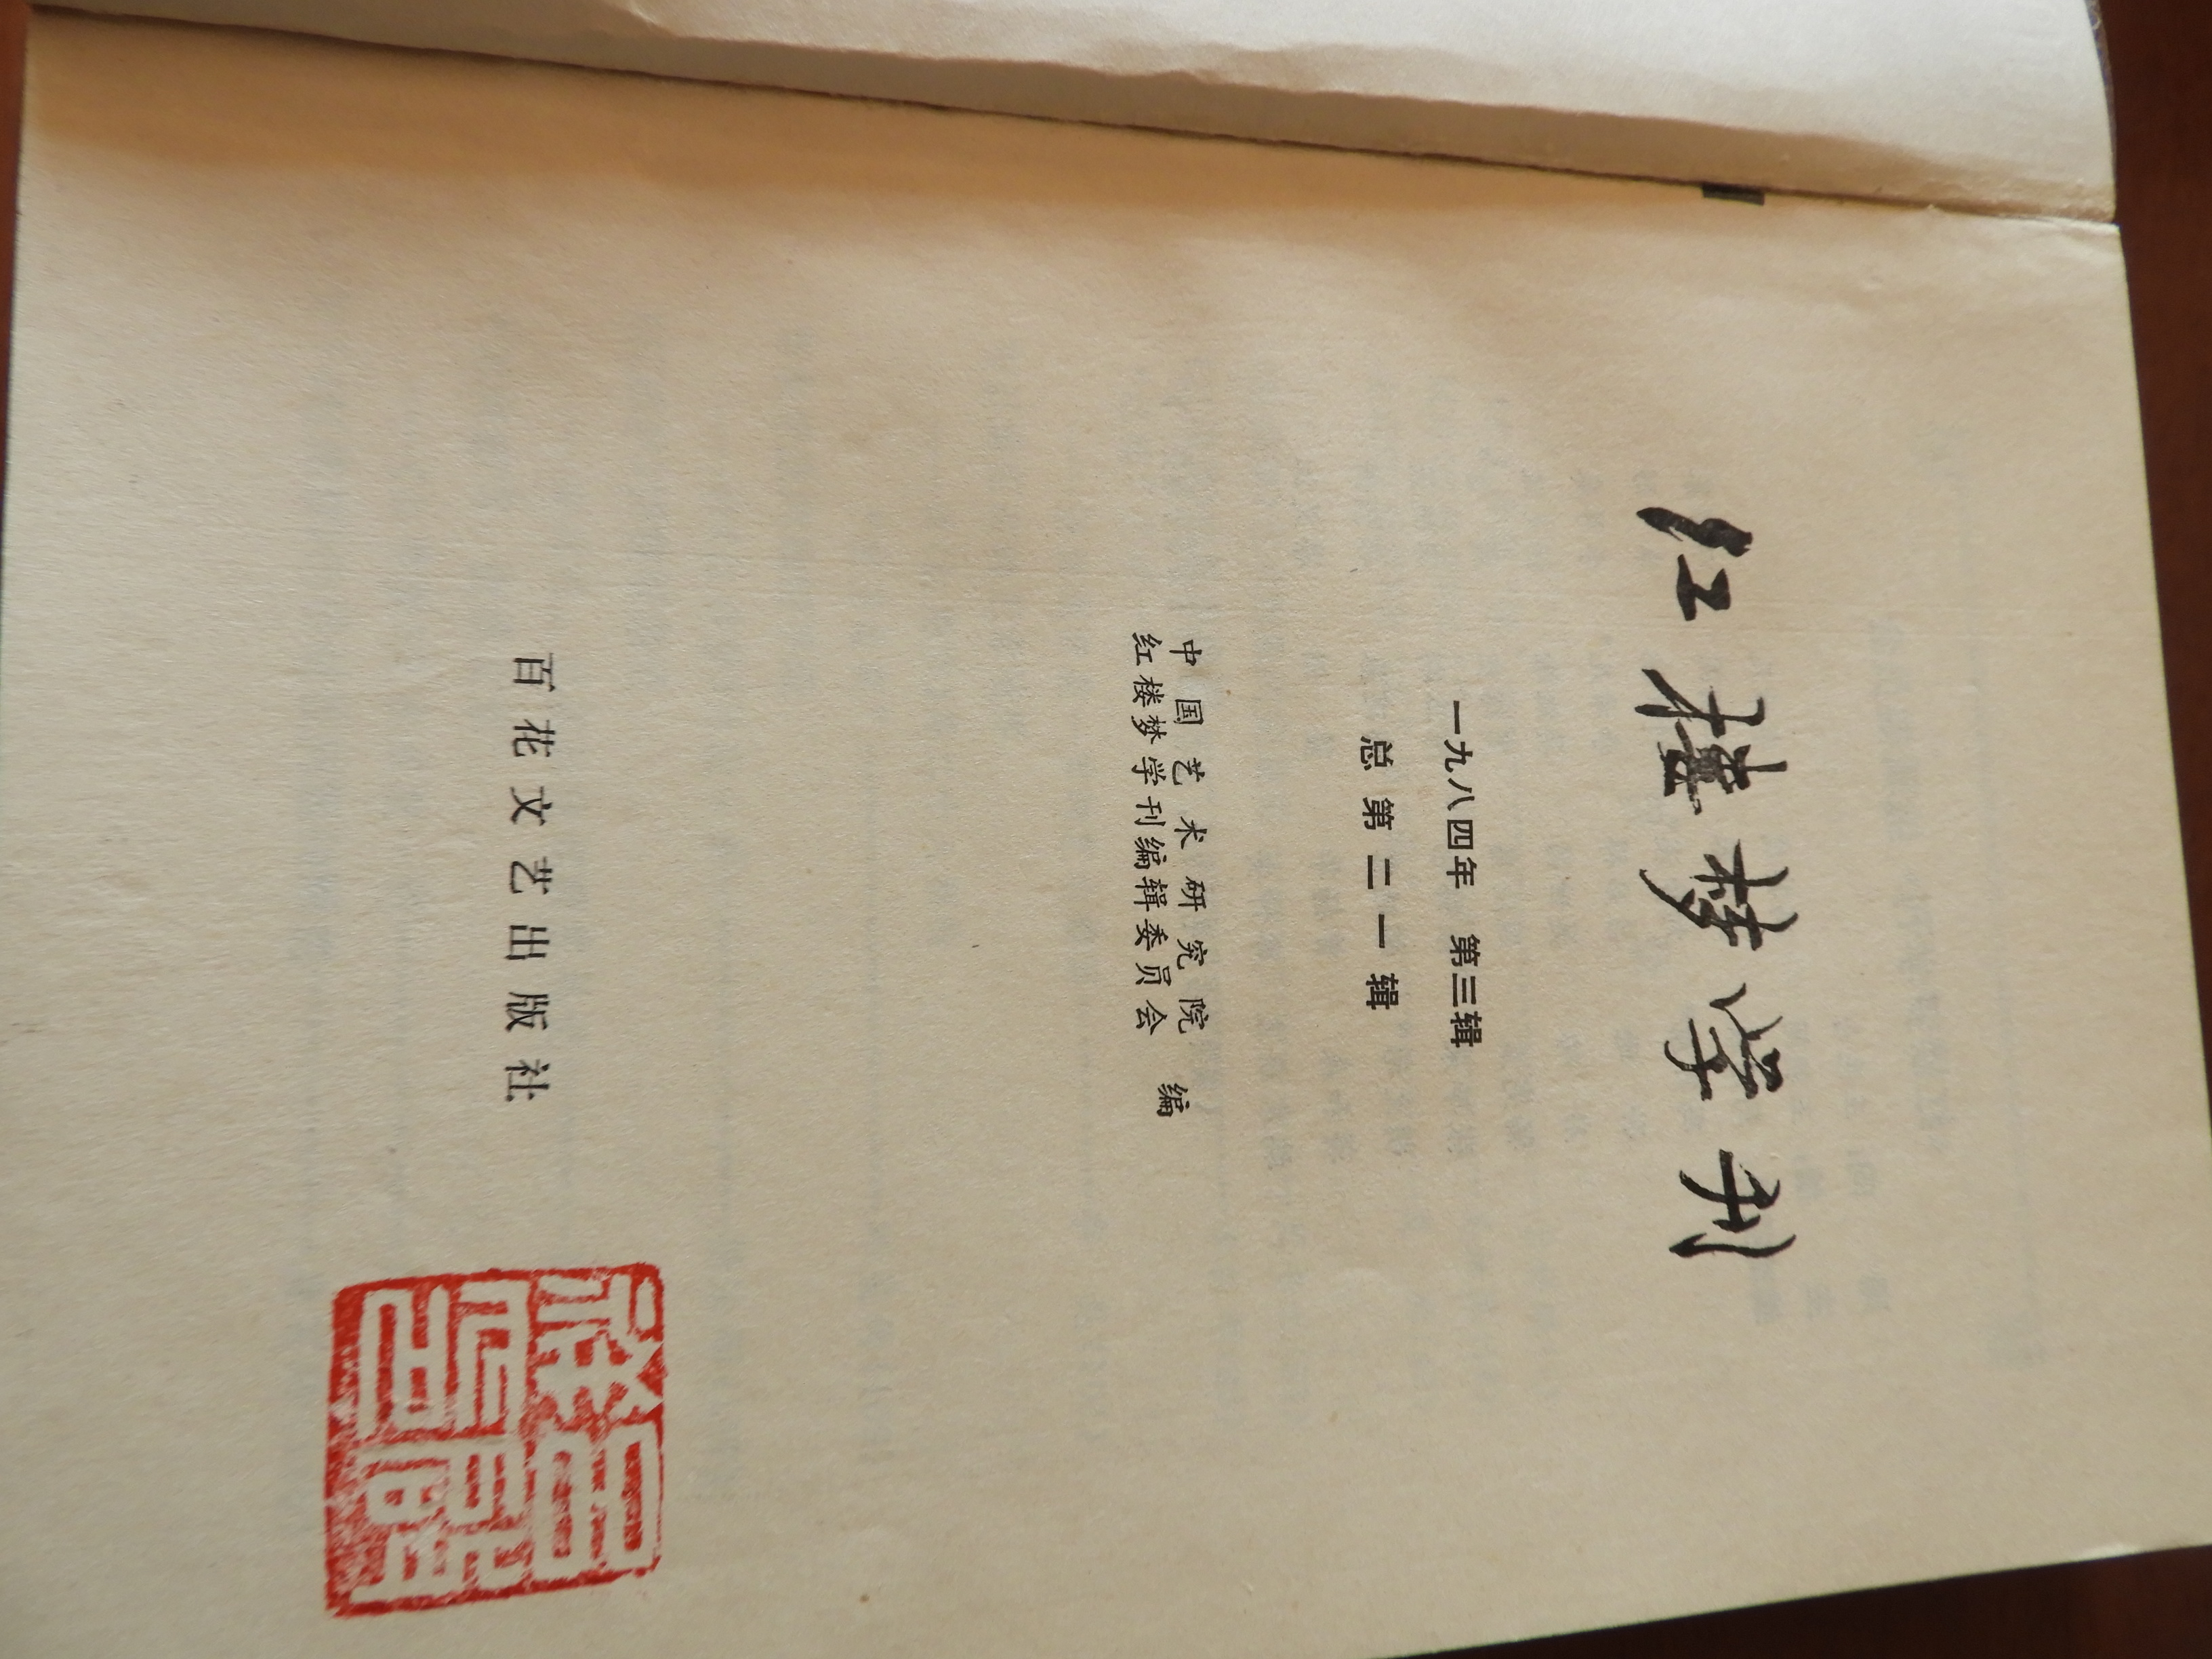 红楼梦学刊
一九八四年 第三辑
总第二一辑
中国艺术研究院
红楼梦学刊编辑委员会 编
百花文艺出版社
吕启祥印